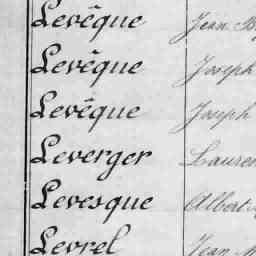 Levêque Jean
Levêque Joseph
Levêque Joseph
Leverger
Levesque Albert
Levrel Jean